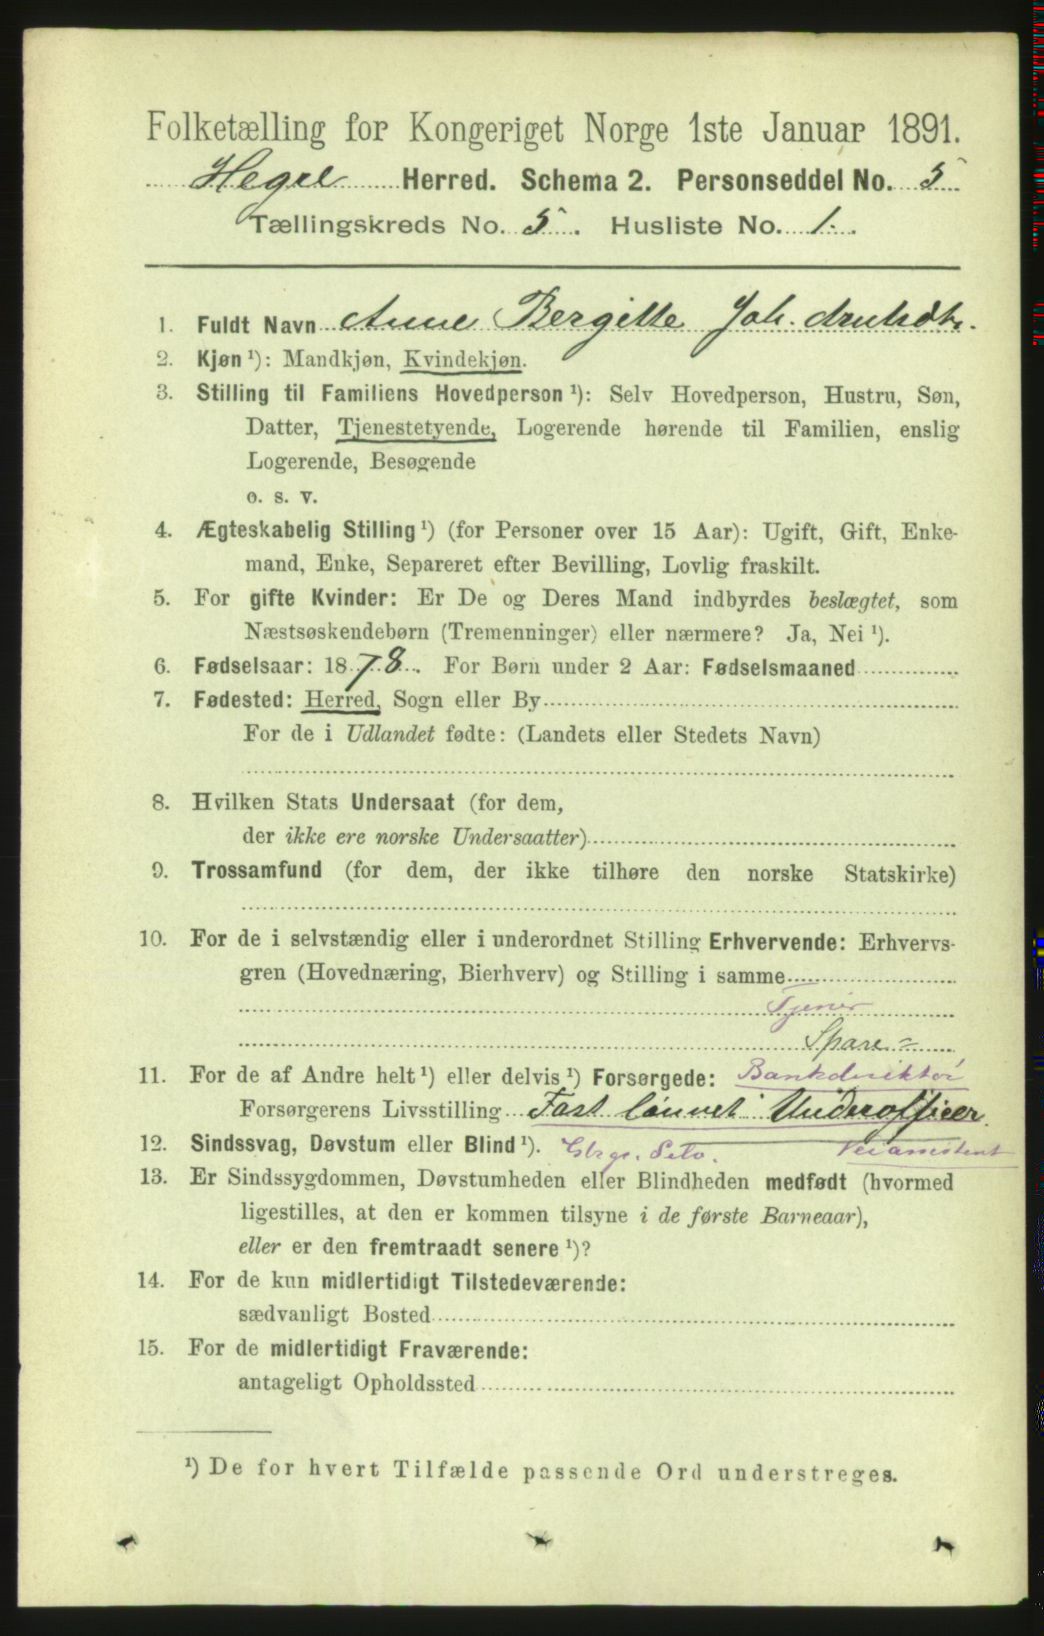 Folketælling for Kongeriget Norge 1ste Januar 1891.
Hegre Herred. Schema 2. Personseddel No. 5
Tællingskreds No. 5. Husliste No. 1.
1. Fuldt Navn Anne Bergitte Joh.
2. Kjøn ¹): Mandkjøn, Kvindekjøn.
3. Stilling til Familiens Hovedperson ¹): Selv Hovedperson, Hustru, Søn,
Datter, Tjenestetyende, Logerende hørende til Familien, enslig
Logerende, Besøgende
o. s. v.
4. Ægteskabelig Stilling ¹) (for Personer over 15 Aar): Ugift, Gift, Enke-
mand, Enke, Separeret efter Bevilling, Lovlig fraskilt.
5. For gifte Kvinder: Er De og Deres Mand indbyrdes beslægtet, som
Næstsøskendebørn (Tremenninger) eller nærmere? Ja, Nei ¹).
6. Fødselsaar: 1878. For Børn under 2 Aar: Fødselsmaaned
7. Fødested: Herred, Sogn eller By
For de i Udlandet fødte: (Landets eller Stedets Navn)
8. Hvilken Stats Undersaat (for dem,
der ikke ere norske Undersaatter)
9. Trossamfund (for dem, der ikke tilhøre den norske Statskirke)
10. For de i selvstændig eller i underordnet Stilling Erhvervende: Erhvervs-
gren (Hovednæring, Bierhverv) og Stilling i samme
Tjener
Spare=
11. For de af Andre helt ¹) eller delvis ¹) Forsørgede: Bankdirektør
Forsørgerens Livsstilling Fast lønnet Underofficer.
12. Sindssvag, Døvstum eller Blind ¹). Gbrgr. Selv. Veiassistent
13. Er Sindssygdommen, Døvstumheden eller Blindheden medfødt (hvormed
ligestilles, at den er kommen tilsyne i de første Barneaar),
eller er den fremtraadt senere ¹)?
14. For de kun midlertidigt Tilstedeværende:
sædvanligt Bosted
15. For de midlertidigt Fraværende:
antageligt Opholdssted
¹) De for hvert Tilfælde passende Ord understreges.